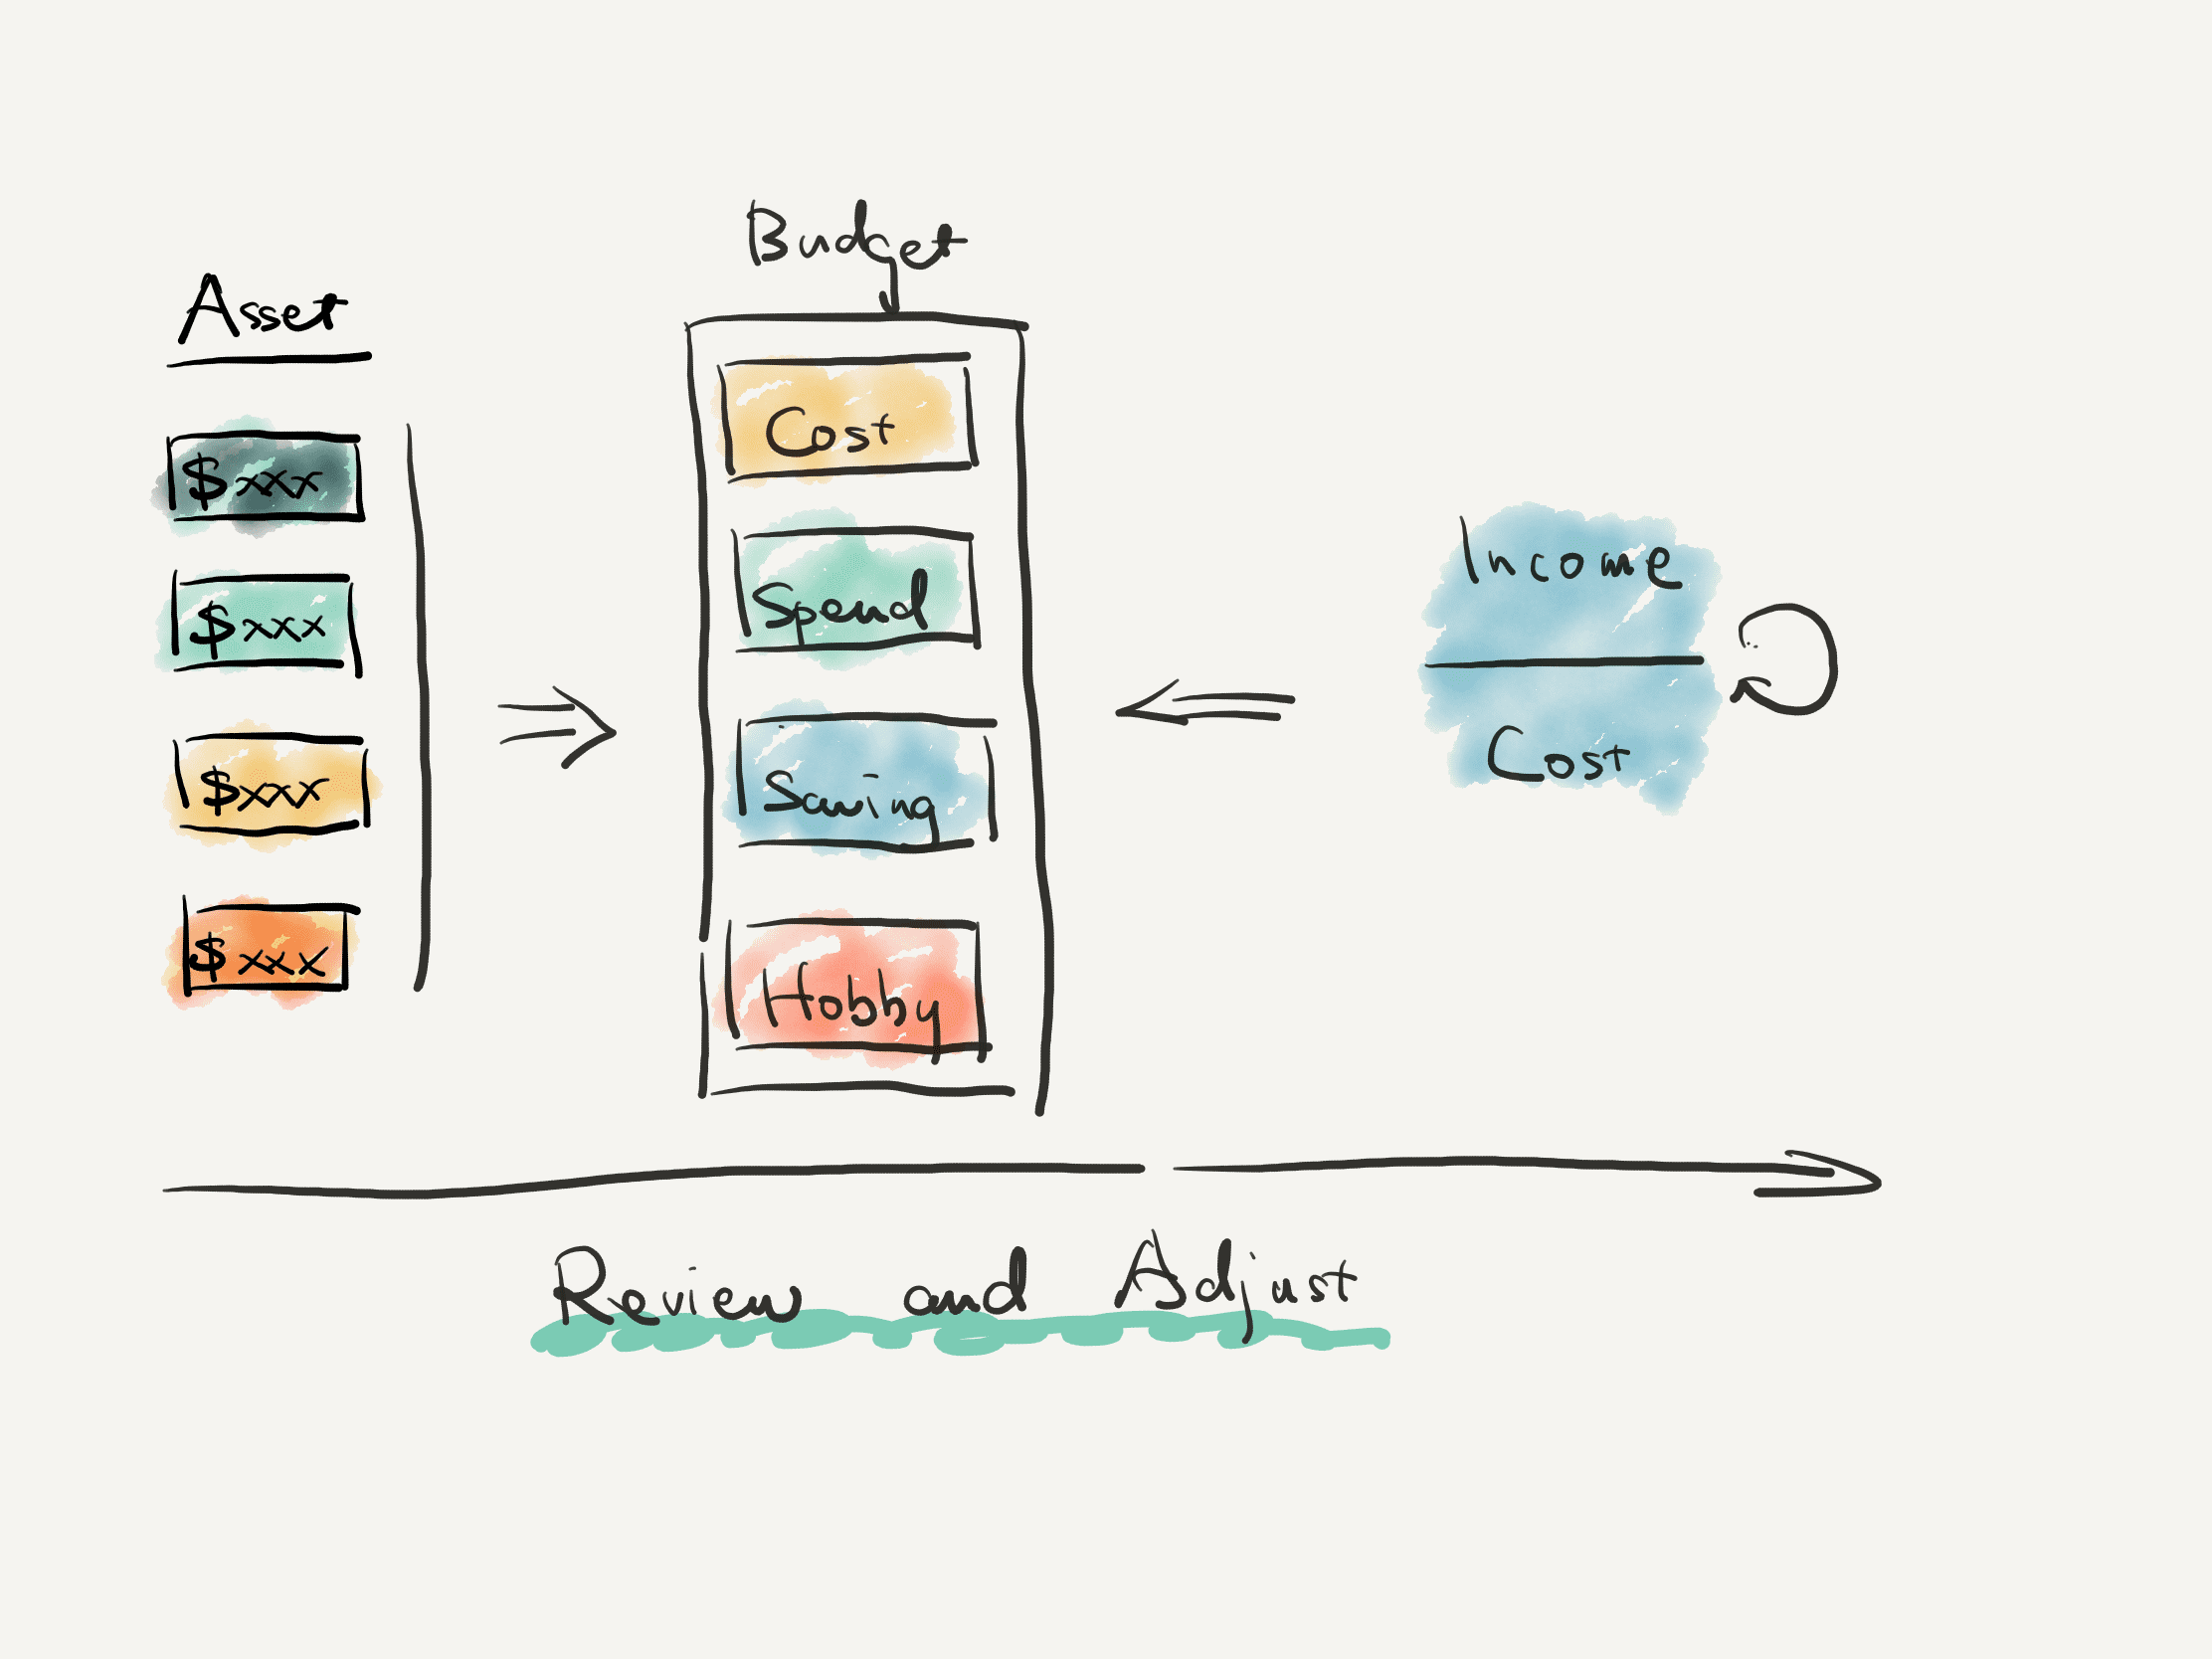 Asset
$xxx
$xxx
$xxx
$xxx
Budget
Cost
Spend
Saving
Hobby
Income
Cost
Review and Adjust